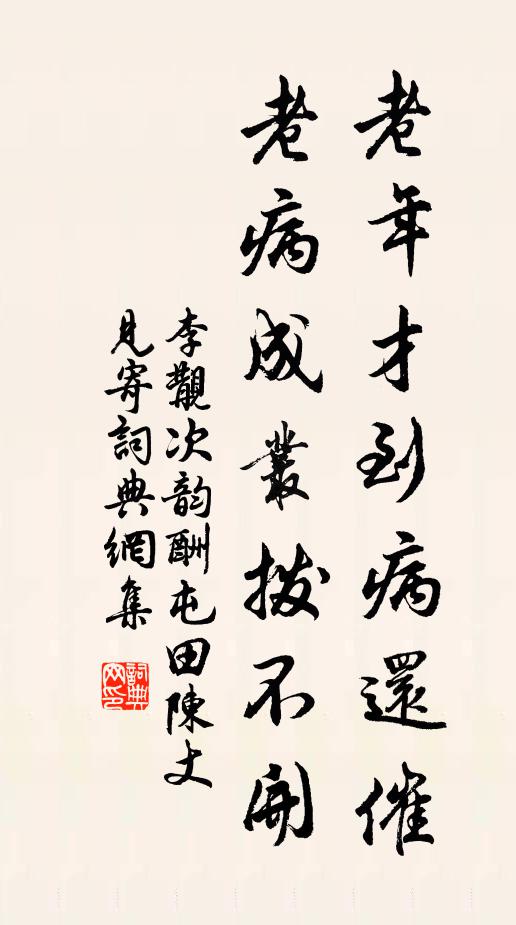 老年才到病還催
老病成叢撥不開
李覯次韵酬屯田陳丈
見寄詞典網集
詞典網印